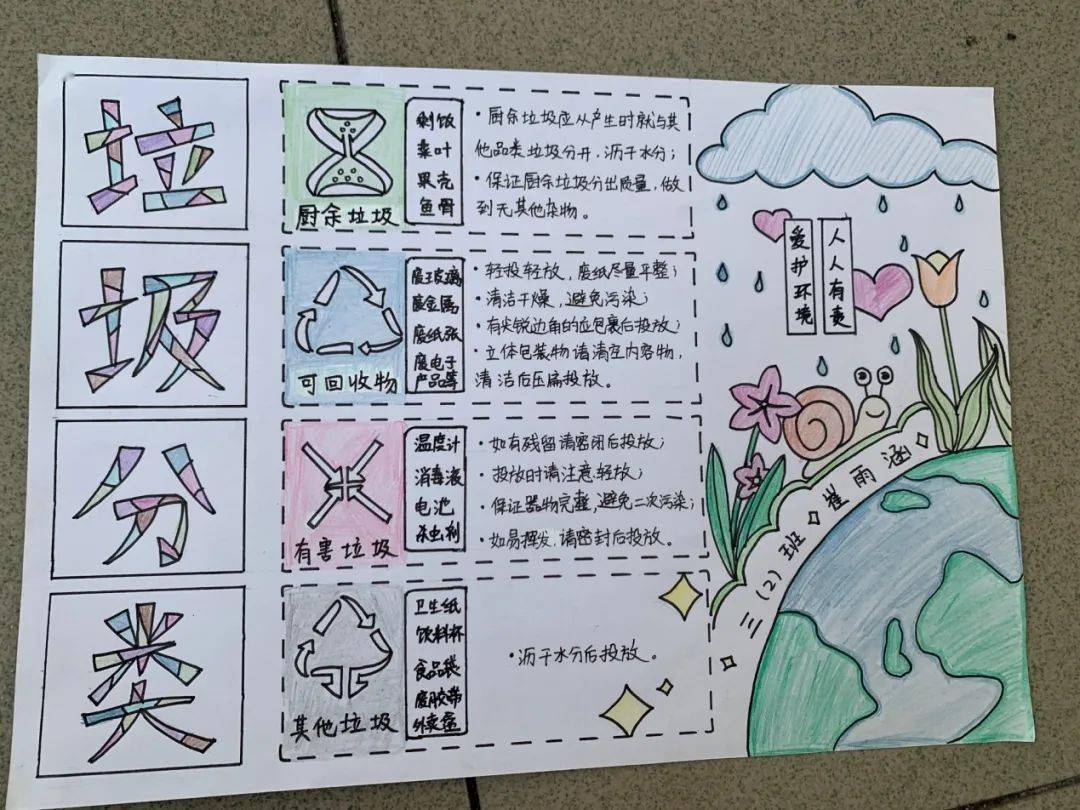 垃
圾
分
类
厨余垃圾
剩饭
菜叶
果壳
鱼骨
·厨余垃圾应从产生时就与其
他品类垃圾分开,沥干水分;
·保证厨余垃圾分出质量,做
到无其他杂物。
可回收物
废玻璃
废金属
废纸张
废电子
产品等
·轻投轻放,废纸尽量平整;
·清洁干燥,避免污染;
·有尖锐边角的应包裹后投放;
·立体包装物请清空内容物,
清洁后压扁投放。
有害垃圾
温度计
消毒液
电池
杀虫剂
·如有残留请密闭后投放;
·投放时请注意轻放;
·保证器物完整,避免二次污染;
·如易挥发,请密封后投放。
其他垃圾
卫生纸
饮料杯
食品袋
废胶带
外卖盒
·沥干水分后投放。
爱护环境
人人有责
三(2)班 崔雨涵